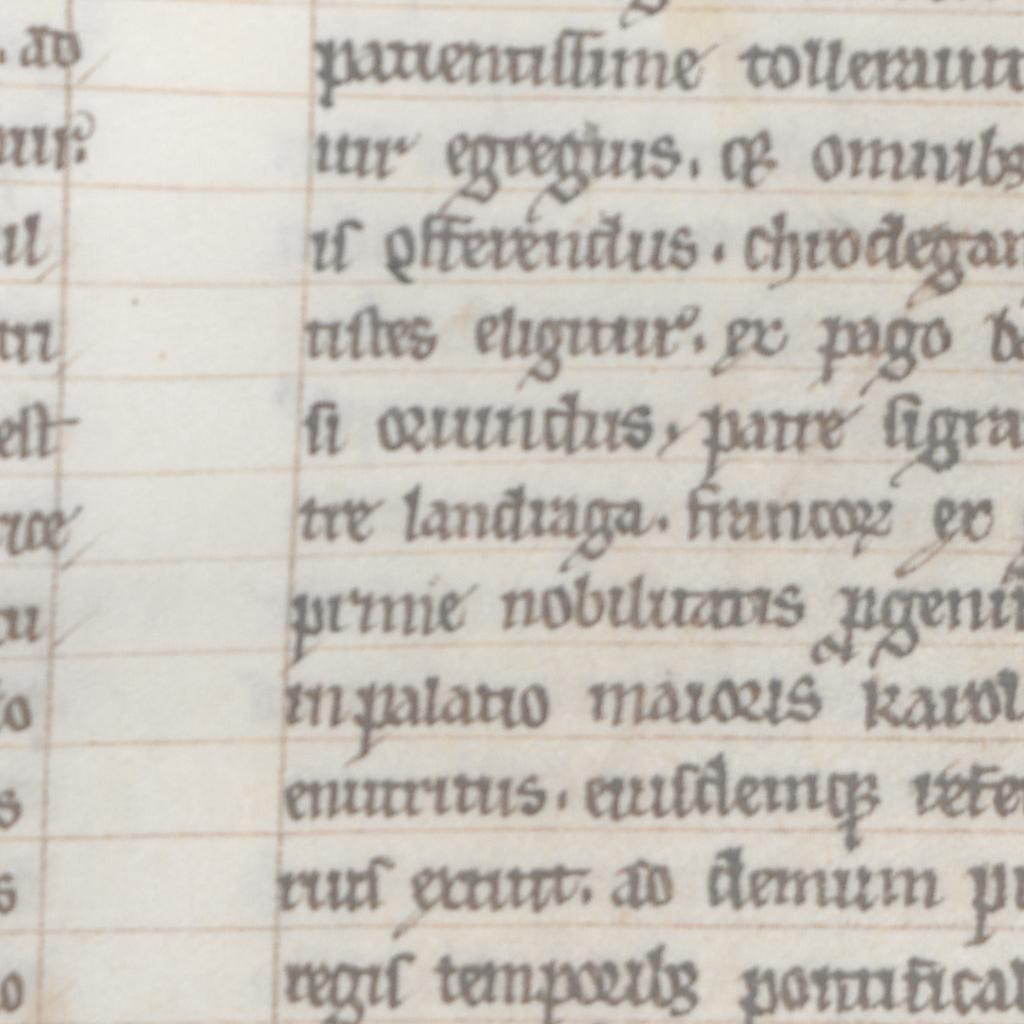 ad
patientissime tollerauit
uir egregius. qꝫ omnibꝫ
is efferendus. chrodegan
tistes eligitur. ex pago
si oriundus, patre sigra
est
tre landraga. francoꝝ ex
prime nobilitatis ꝓgenii
in palatio maioris karol
enutritus. eiusdemqꝫ refe
rius extitit. ad demum pi
regis temporibꝫ pontifical